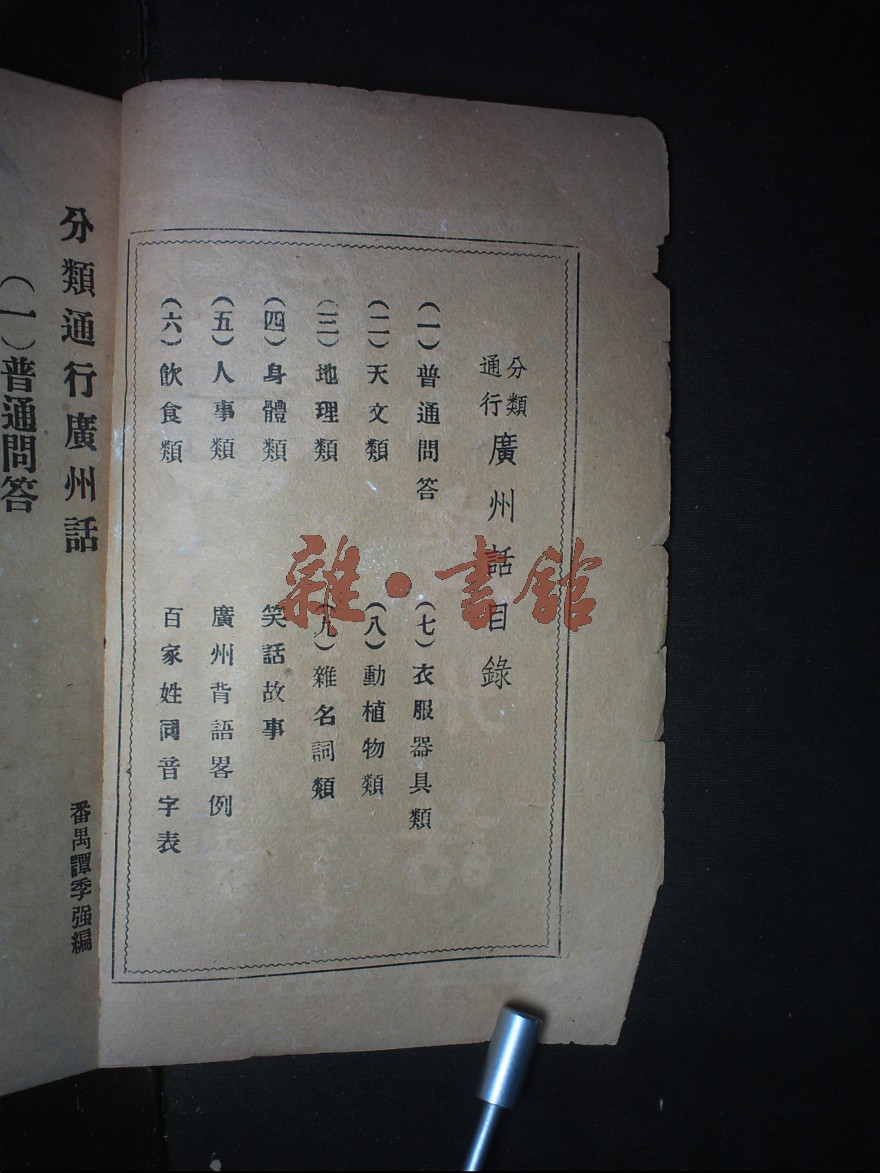 分類通行廣州話目錄
(一)普通問答
(二)天文類
(三)地理類
(四)身體類
(五)人事類
(六)飲食類
(七)衣服器具類
(八)動植物類
(九)雜名詞類
笑話故事
廣州背語畧例
百家姓同音字表
分類通行廣州話
番禺譚季强編
(一)普通問答
雜·書館